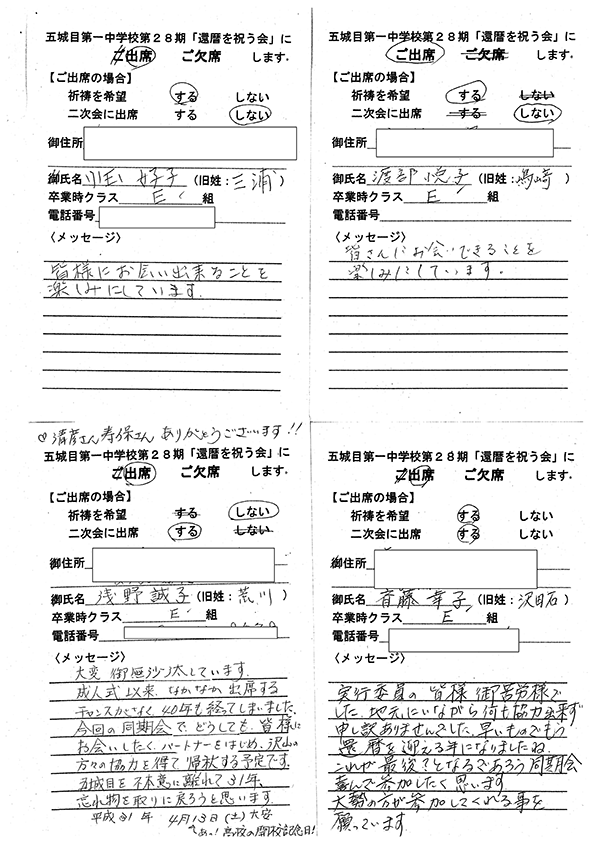 五城目第一中学校第２８期「還暦を祝う会」に
ご出席　ご欠席　します．
【ご出席の場合】
祈祷を希望　する　しない
二次会に出席　する　しない
御住所
御氏名 小玉 好子 (旧姓：三浦)
卒業時クラス E 組
電話番号
〈メッセージ〉
皆様にお会い出来ることを
楽しみにしています．
五城目第一中学校第２８期「還暦を祝う会」に
ご出席　ご欠席　します．
【ご出席の場合】
祈祷を希望　する　しない
二次会に出席　する　しない
御住所
御氏名 渡部 悦子 (旧姓：嶋崎)
卒業時クラス E 組
電話番号
〈メッセージ〉
皆さんにお会いできることを
楽しみにしています．
♡清彦さん 寿保さん ありがとうございます!!
五城目第一中学校第２８期「還暦を祝う会」に
ご出席　ご欠席　します．
【ご出席の場合】
祈祷を希望　する　しない
二次会に出席　する　しない
御住所
御氏名 浅野 誠子 (旧姓：荒川)
卒業時クラス E 組
電話番号
〈メッセージ〉
大変 御無沙汰しています．
成人式以来、なかなか出席する
チャンスがなく 40年も経てしまいました．
今回の同期会で、どうしても、皆様に
お会いしたく、パートナーをはじめ、沢山の
方々の協力を得て 帰秋する予定です．
五城目を不本意に離れて31年、
忘れ物を取りに戻ろうと思います．
平成31年 4月13日(土)大安
あっ！高校の開校記念日！
五城目第一中学校第２８期「還暦を祝う会」に
ご出席　ご欠席　します．
【ご出席の場合】
祈祷を希望　する　しない
二次会に出席　する　しない
御住所
御氏名 斉藤 幸子 (旧姓：沢田石)
卒業時クラス E 組
電話番号
〈メッセージ〉
実行委員の皆様 御苦労様で
した．地元にいながら何も協力出来ず
申し訳ありませんでした．早いものでもう
還暦を迎える年になりましたね．
これが最後？となるであろう同期会
喜んで参加したく思います
大勢の方が参加してくれる事を
願っています